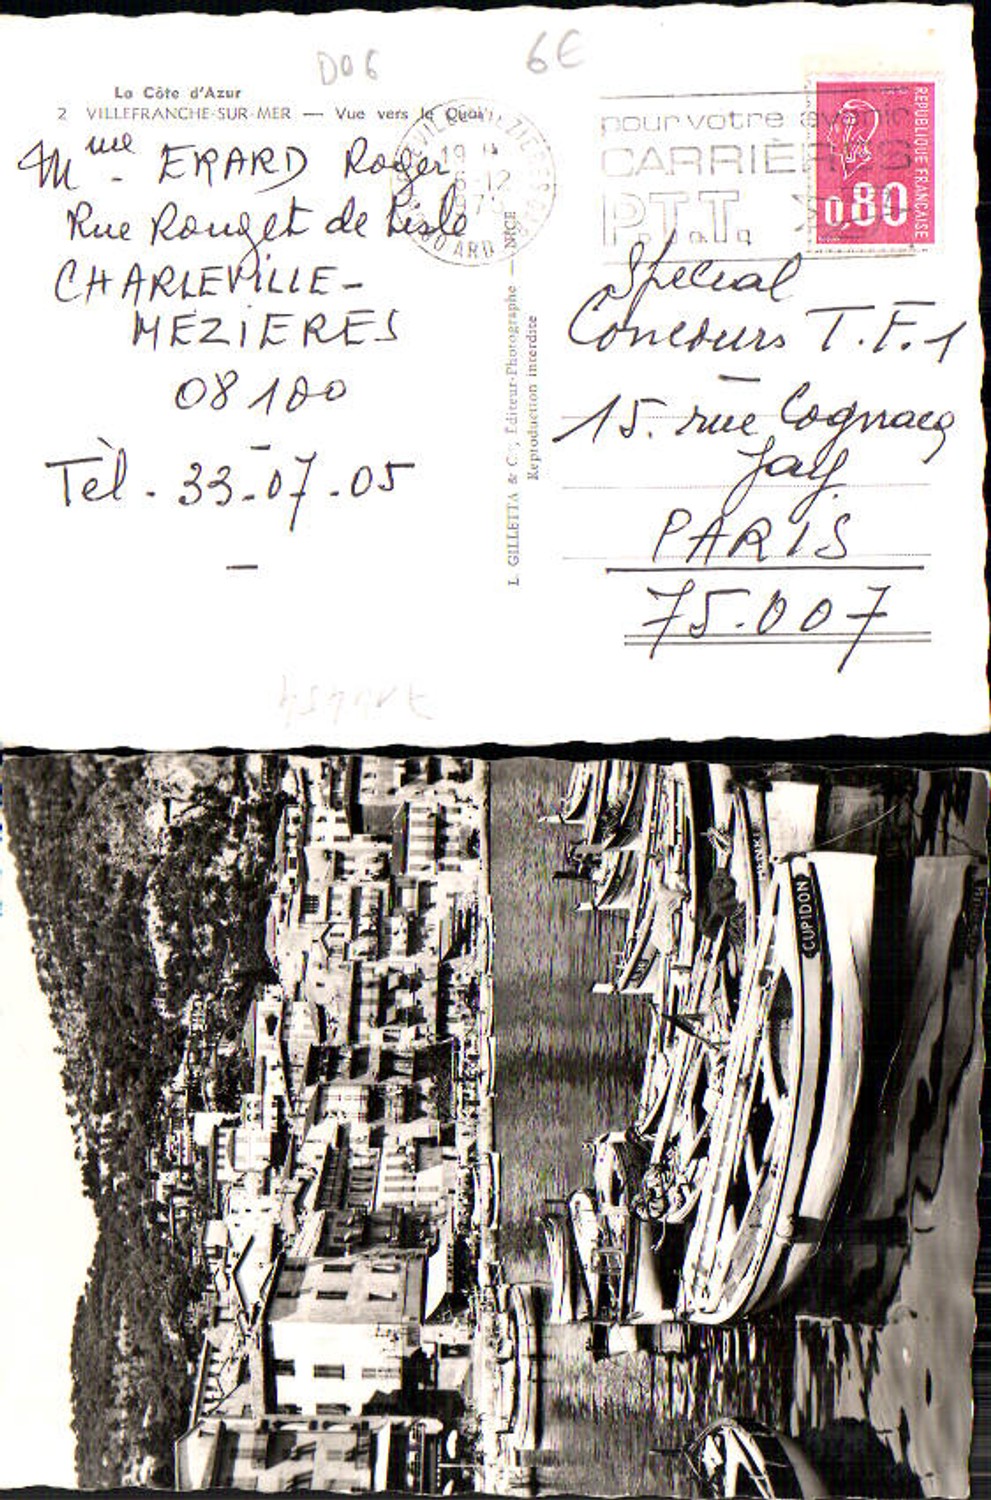 D06
6€
La Côte d'Azur
2 VILLEFRANCHE-SUR-MER — Vue vers le Quai
Mme. ERARD Roger
Rue Rouget de Lisle
CHARLEVILLE-
MEZIERES
08100
Tèl. 33.07.05
L. GILLETTA & Cie, Éditeur-Photographe — NICE
Reproduction interdite
19 H
-12
1975
ARD
pour votre avenir
CARRIÈRES
P.T.T.
REPUBLIQUE FRANÇAISE
0,80
Special
Concours T.F.1
15. rue Cognacq
Jay
PARIS
75.007
CUPIDON